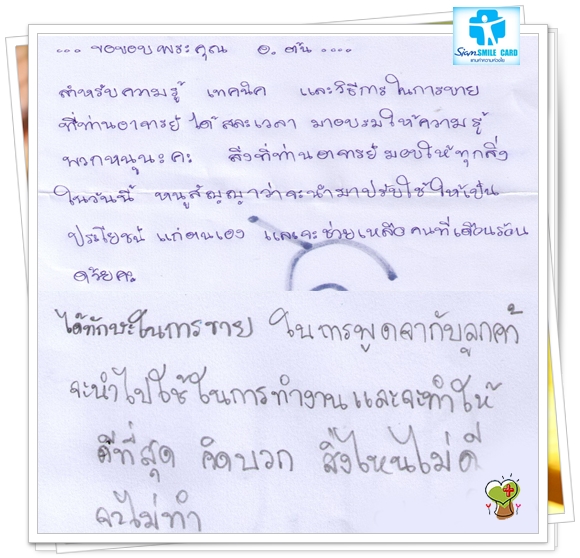 SiamSMILE CARD
... ขอขอบพระคุณ อ. ตัน ....
สำหรับความรู้ เทคนิค และวิธีการในการขาย
ที่ท่านอาจารย์ได้สละเวลา มาอบรมให้ความรู้
พวกหนูนะคะ สิ่งที่ท่านอาจารย์มอบให้ทุกสิ่ง
ในวันนี้ หนูสัญญาว่าจะนำมาปรับใช้ให้เป็น
ประโยชน์ แก่ตนเอง และจะช่วยเหลือคนที่เดือนร้อน
ด้วยคะ
ได้ทักษะในการขาย ในการพูดจากับลูกค้า
จะนำไปใช้ในการทำงานและจะทำให้
ดีที่สุด คิดบวก สิ่งไหนไม่ดี
จะไม่ทำ